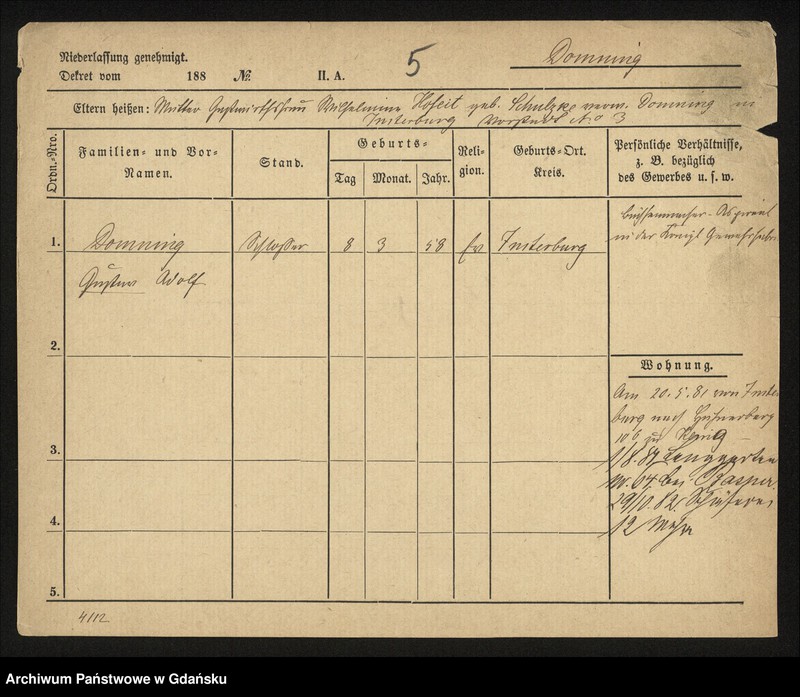 Niederlassung genehmigt.
Dekret vom 188 № II. A. 5 Domning
Eltern heißen: Mutter Gastwirthsfrau Wilhelmine Hofeit geb. Schulzke verw. Domning in
Insterburg Vorstadt No 3
Ordn.-Nro.
Familien- und Vor-Namen.
Stand.
Geburts-
Tag Monat. Jahr.
Religion.
Geburts-Ort.
Kreis.
Persönliche Verhältnisse,
z. B. bezüglich
des Gewerbes u. s. w.
Büchsenmacher-Aspirant
in der Königl Gewehrfabrik
1. Domning Schlosser 8 3 58 Ev Insterburg
Gustav Adolf
2.
Wohnung.
Am 20.5.81 von Inster
burg nach Hühnerberg
zu
3.
1/8.81 Langgarten
Nr. 64 bei
29/10.82 Schäferei
4.
12
5.
4112
Archiwum Państwowe w Gdańsku